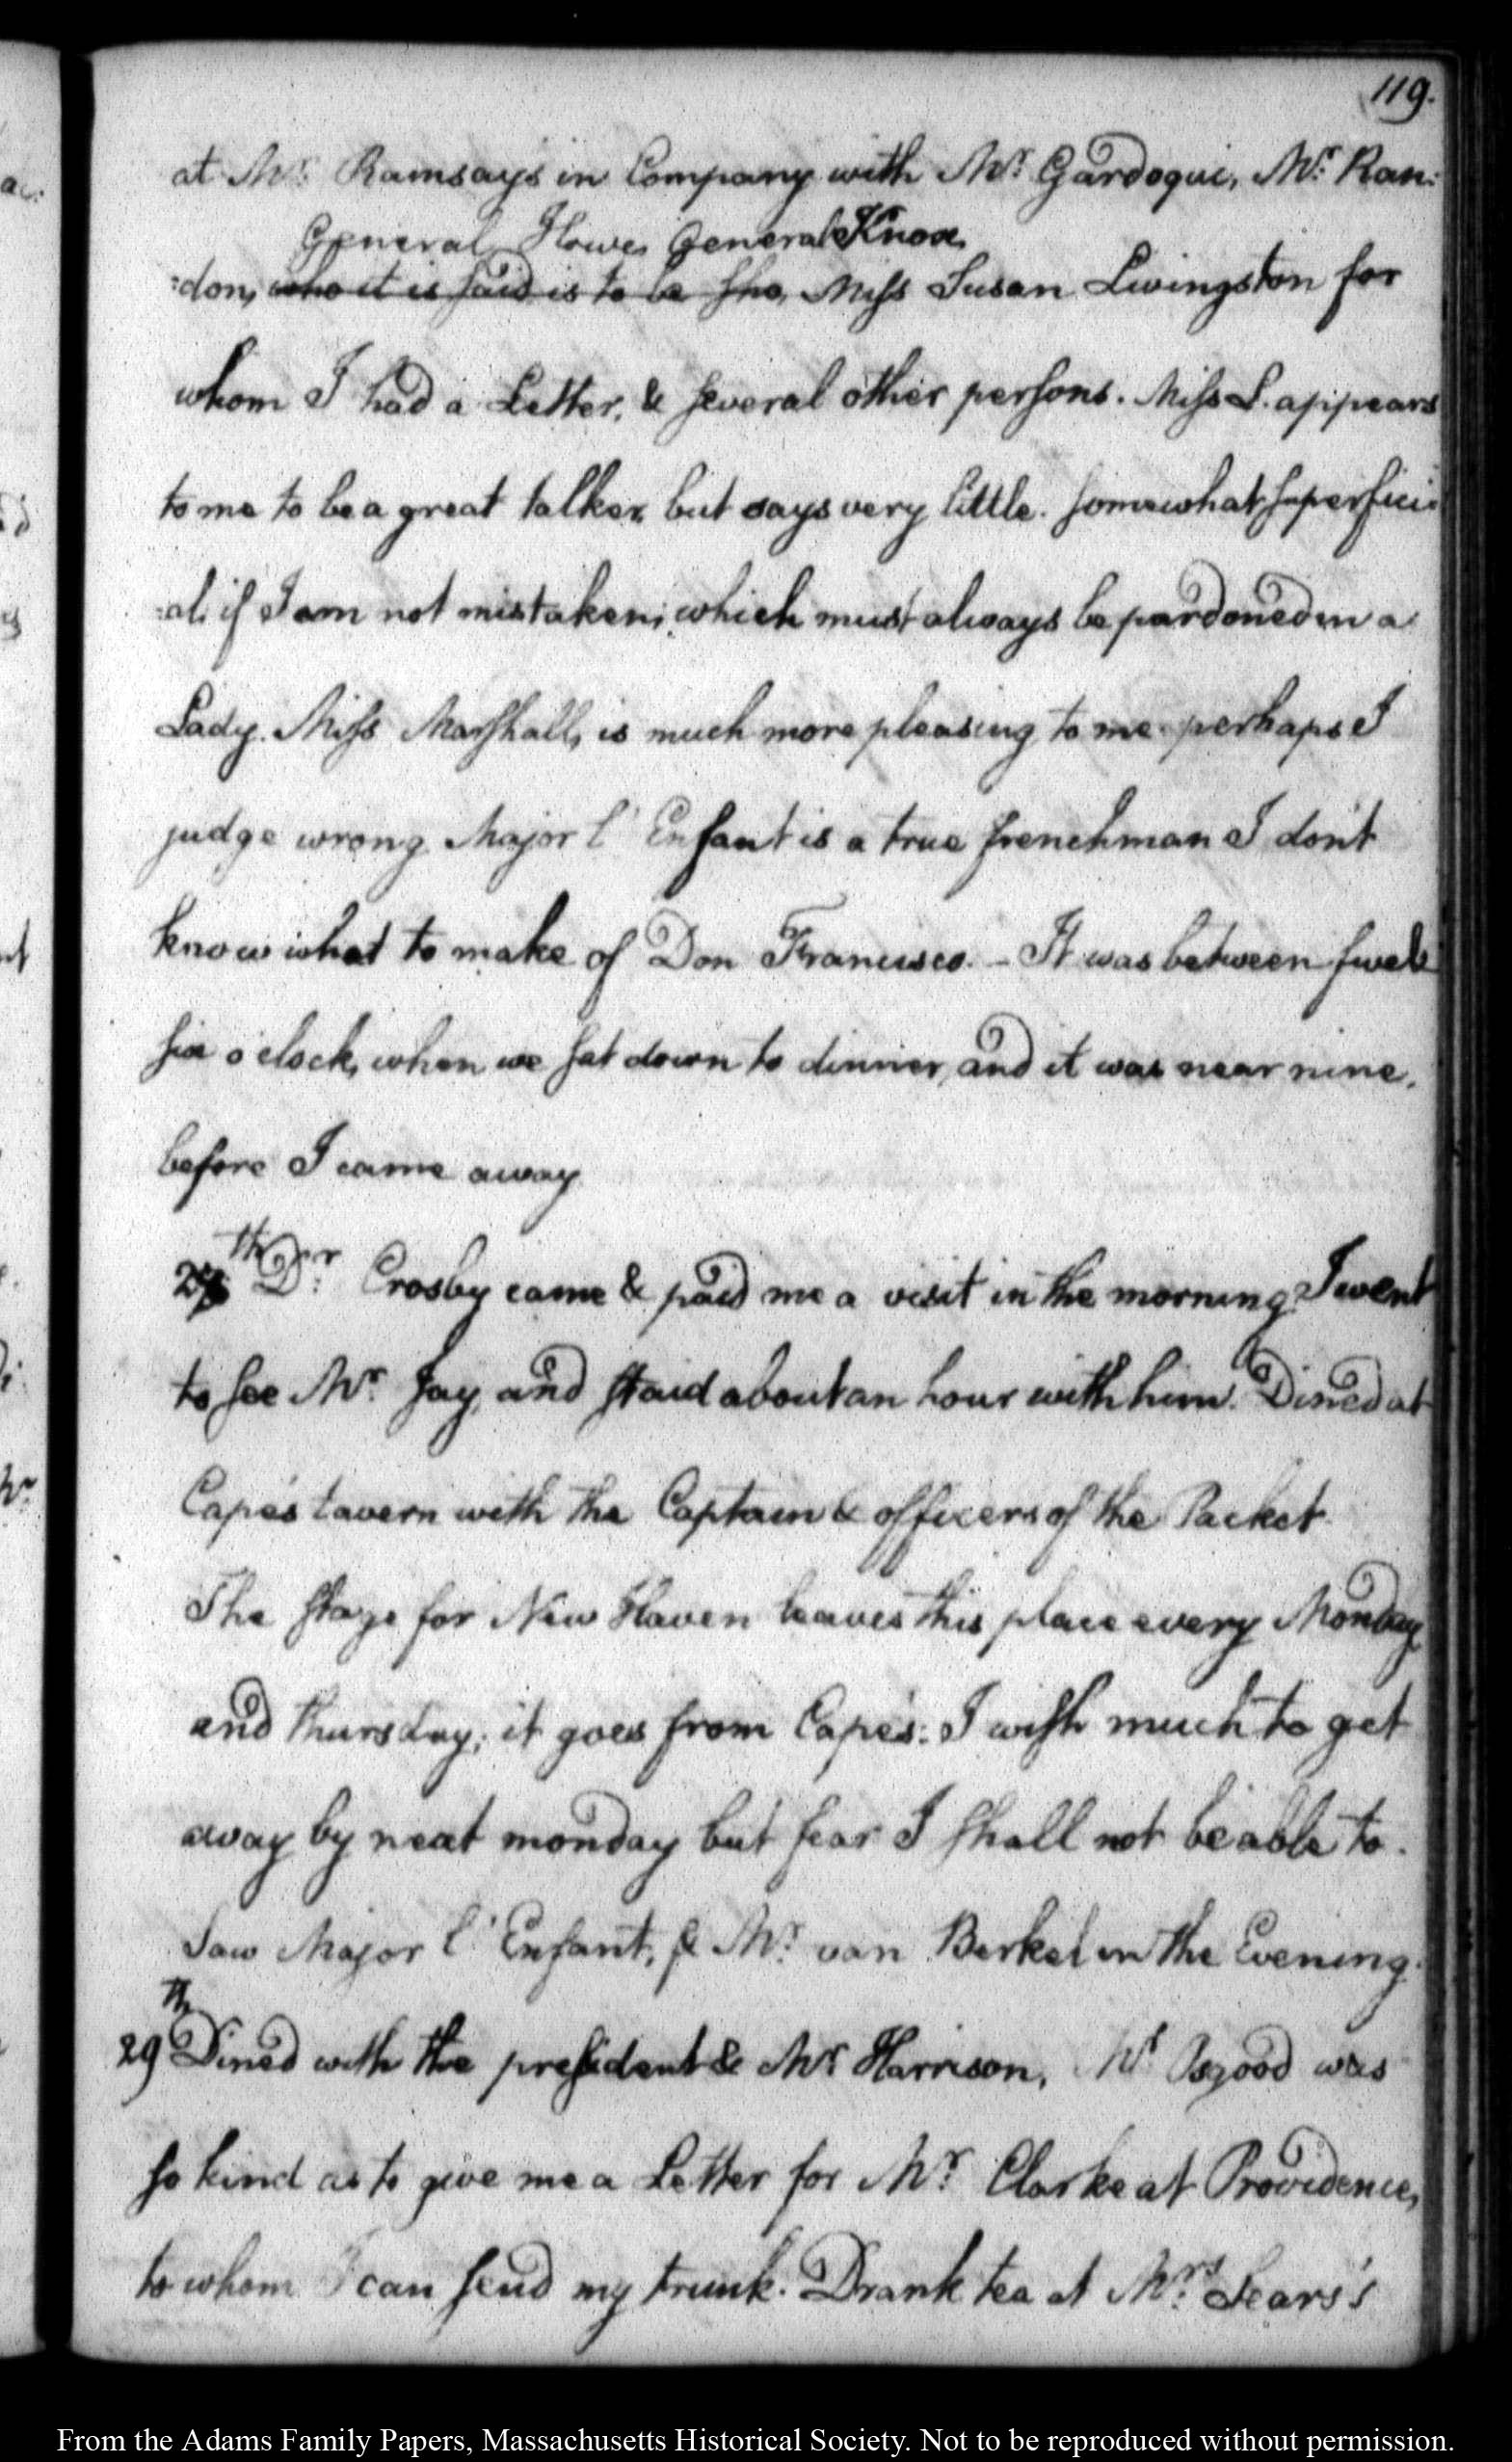 119.
at Mr. Ramsays in Company with Mr. Gardoqui, Mr. Ran:
General Howe, General Knox,
:don, who it is said is to be Miss Susan Livingston for
whom I had a Letter, & several other persons. Miss L. appears
to me to be a great talker, but says very little. somewhat superfici:
:al, if I am not mistaken; which must always be pardoned in a
Lady. Miss Marshall, is much more pleasing to me. perhaps I
judge wrong. Major l'Enfant is a true frenchman I don't
know what to make of Don Francisco. - It was between five &
six o'clock, when we sat down to dinner, and it was near nine,
before I came away
th Dr. Crosby came & paid me a visit in the morning. I went
to see Mr. Jay, and staid about an hour with him. Dined at
Cape's tavern with the Captain & officers of the Packet.
The stage for New Haven leaves this place every Monday
and thursday; it goes from Cape's: I wish much to get
away by next monday but fear I shall not be able to.
Saw Major l'Enfant, & Mr. van Berkel in the Evening.
29th Dined with the president & Mr. Harrison, Mr. Osgood was
so kind as to give me a Letter for Mr. Clarke at Providence,
to whom I can send my trunk. Drank tea at Mrs. Sears's
From the Adams Family Papers, Massachusetts Historical Society. Not to be reproduced without permission.